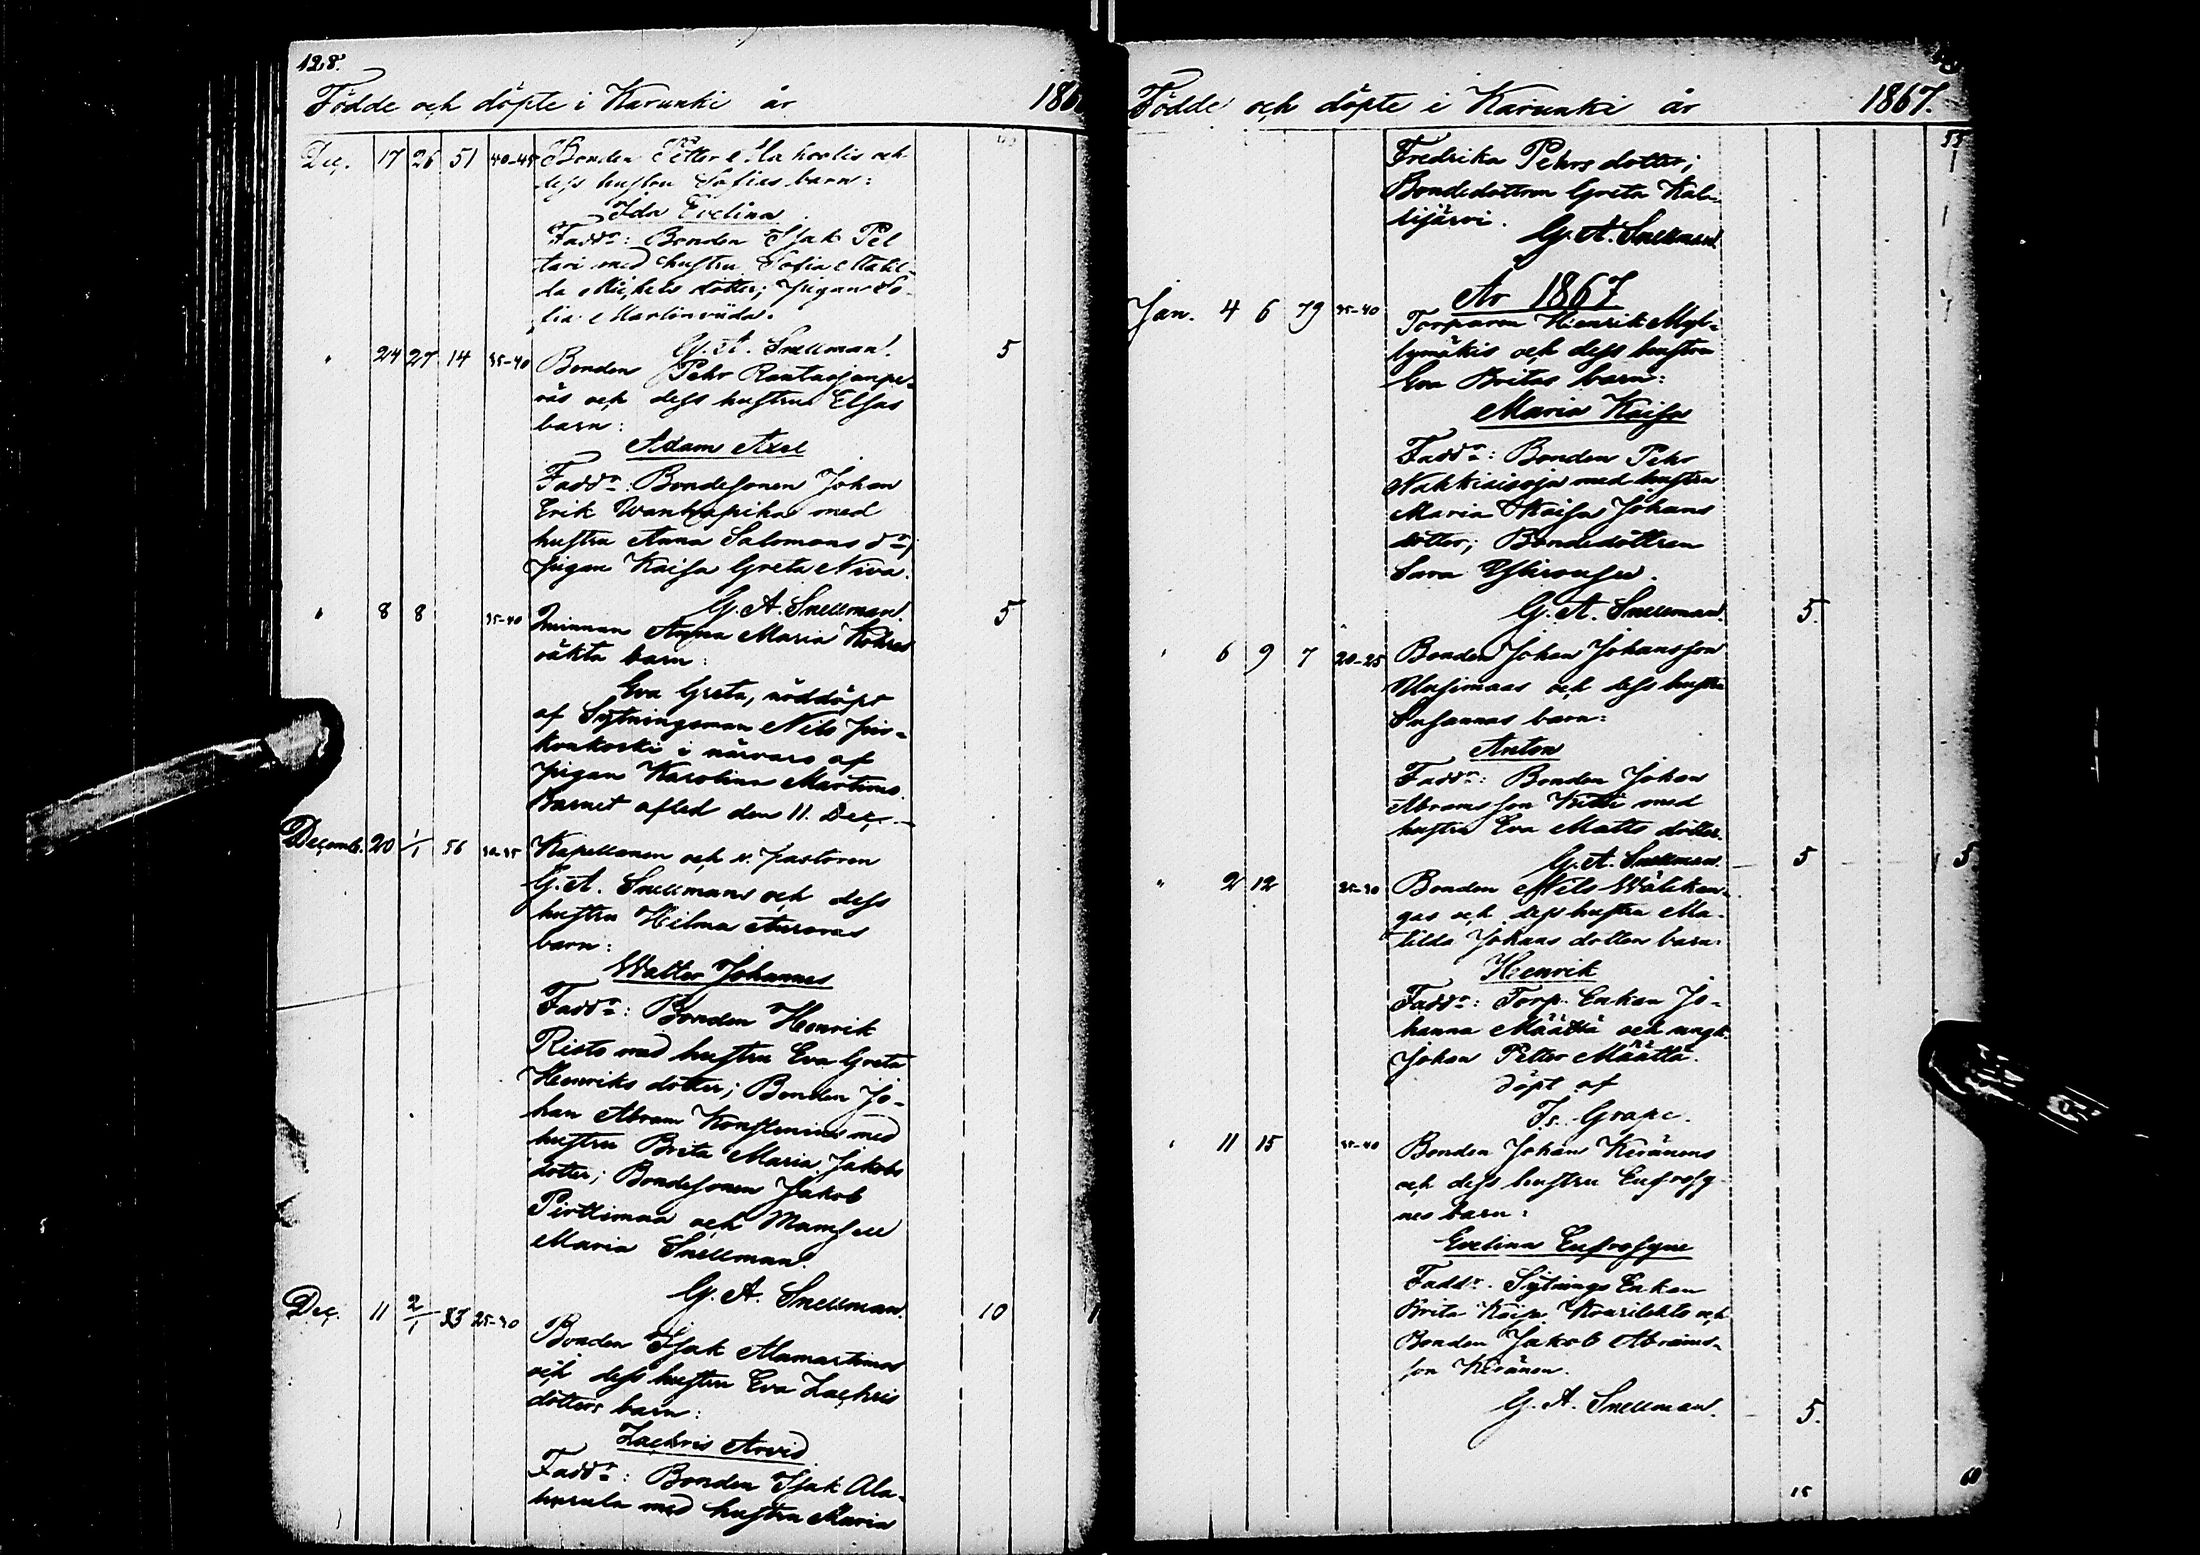 128.
Födde och döpte i Karunki år 186
Dec. 17 26 51 40-45 Bonden Petter Alakoolis och
dess hustru Sofias barn:
Ida Evelina
Faddr: Bonden Isak Pel
tari med hustru Sofia Matil-
da Michels dotter; pigan So-
fia Martinviida.
G. A. Snellman.
" 24 27 14 35-40 Bonden Pehr Rantasjanpe-
räs och dess hustrus Elsas 5
barn:
Adam Axel
Faddr: Bondesonen Johan
Erik Wanhapiha med
hustru Anna Salomons dr;
pigan Kaisa Greta Niva.
G. A. Snellman.
" 8 8 35-40 Qvinnan Anna Maria 5
oäkta barn:
Eva Greta, nöddöpt
af Sytningsman Nils
i närvaro af
pigan Karolina Martimo.
Barnet afled den 11. Dec.
Decemb. 20 1/1 56 30-35 Kapellanen och v. pastoren
G. A. Snellmans och dess
hustru Hilma Auroras
barn:
Walter Johannes
Faddr: Bonden Henrik
Risto med hustru Eva Greta
Henriks dotter; Bonden Jo-
han Abram Konstenius med
hustru Brita Maria Jakobs
dotter; Bondesonen Jakob
Pirttimaa och Mamsell
Maria Snellman.
G. A. Snellman. 10
Dec. 11 2/1 83 25-30 Bonden Isak Alamartimos
och dess hustru Eva Zachris
dotters barn:
Zachris Arvid
Faddr: Bonden Isak Ala-
med hustru Maria
Födde och döpte i Karunki år 1867.
55
Fredrika Pehrs dotter;
Bondedottren Greta Kal-
lijärvi.
G. A. Snellman.
År 1867
Jan. 4 6 79 35-40 Torparen Henrik Myl-
lymäkis och dess hustru
Eva Britas barn:
Maria Kaisa
Faddr: Bonden Pehr
Nakkisoja med hustru
Maria Kaisa Johans
dotter; Bondedottren
Sara
G. A. Snellman. 5.
" 6 9 7 20-25 Bonden Johan Johansson
Uusimaas och dess hustru
Susannas barn:
Anton
Faddr: Bonden Johan
Abramsson Kitti med
hustru Eva Matts dotter.
G. A. Snellman. 5 5
" 2 12 25-30 Bonden Nils Wälikan-
gas och dess hustru Ma-
tilda Johans dotters barn:
Henrik
Faddr: Torp. Enkan Jo-
hanna Määttä och ungk.
Johan Petter Määttä.
döpt af
Is. Grape.
" 11 15 35-40 Bonden Johan Keränens
och dess hustru Eufrosy-
nes barn:
Evelina Eufrosyne
Faddr: Sytnings Enkan
Brita Kaisa Kourilehto och
Bonden Jakob Abrams-
son Keränen.
G. A. Snellman. 5.
15
60